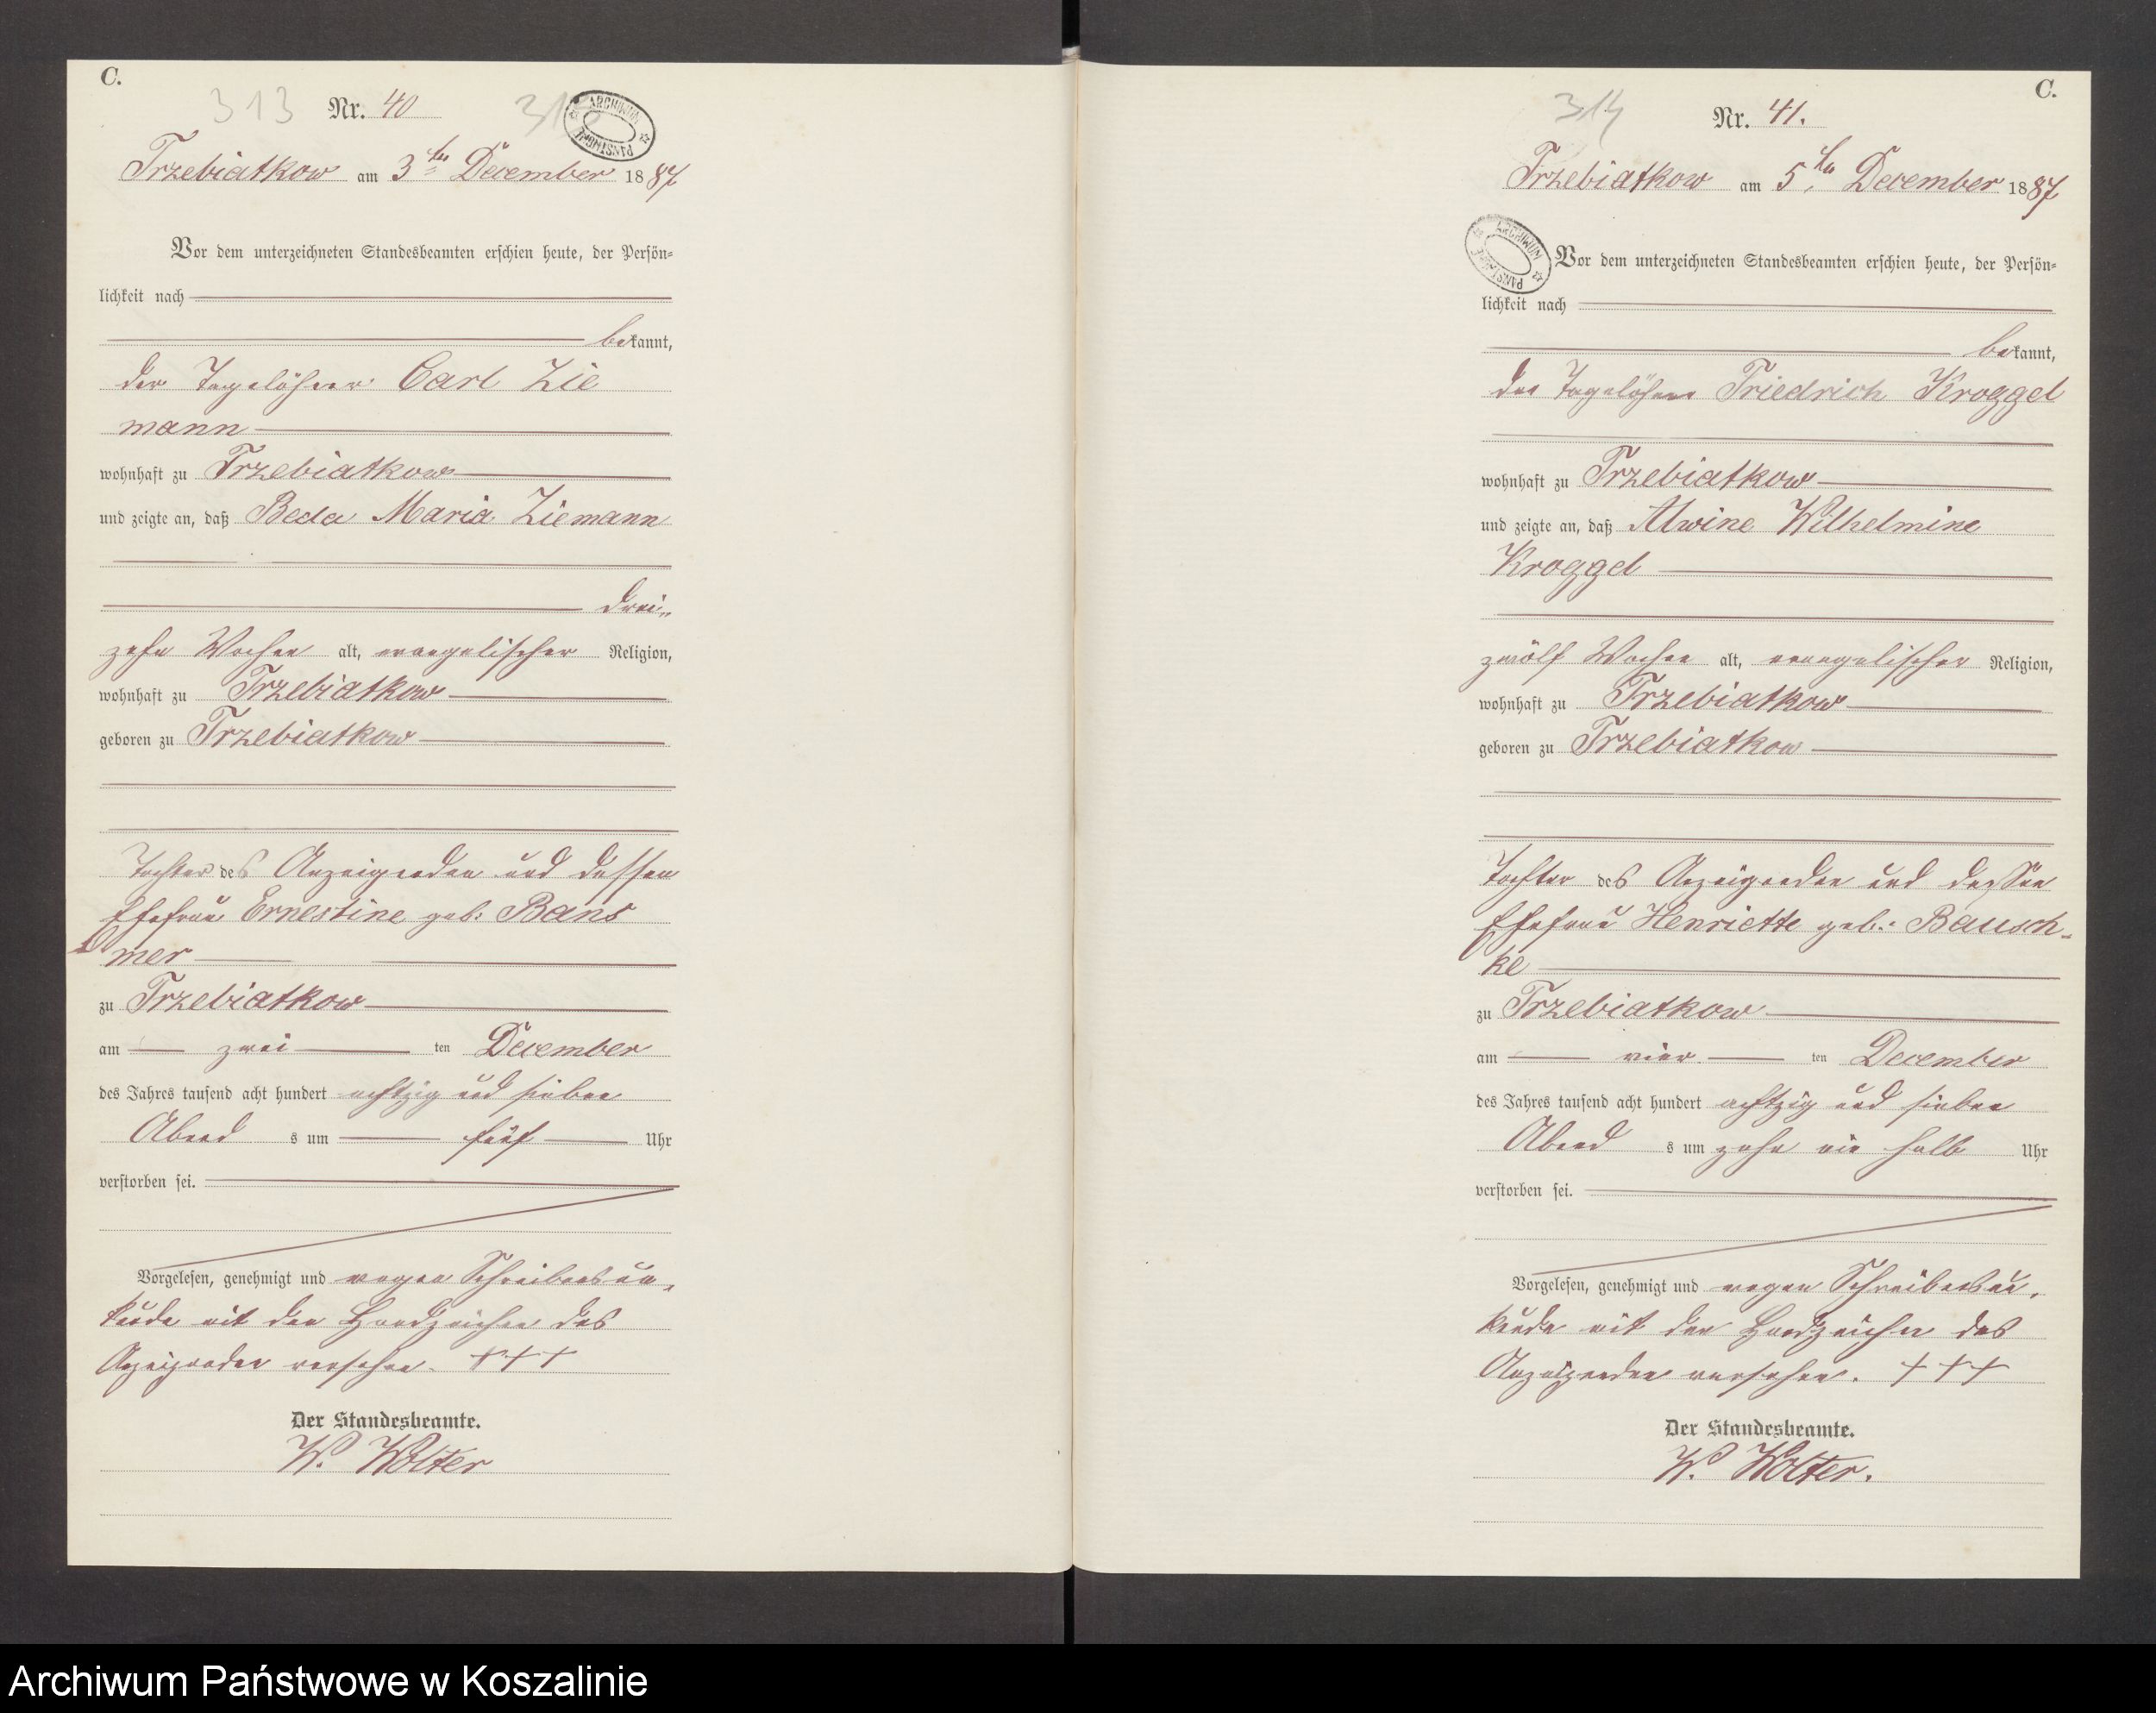 C.
313
Nr. 40
ARCHIWUM PAŃSTWOWE
Trzebiatkow am 3ten December 1887
Vor dem unterzeichneten Standesbeamten erschien heute, der Persön=
lichkeit nach
bekannt,
der Tagelöhner Carl Zie
mann
wohnhaft zu Trzebiatkow
und zeigte an, daß Beda Maria Ziemann
drei=
zehn Wochen alt, evangelischer Religion,
wohnhaft zu Trzebiatkow
geboren zu Trzebiatkow
Tochter des Anzeigenden und dessen
Ehefrau Ernestine geb: Bans
mer
zu Trzebiatkow
am zwei ten December
des Jahres tausend acht hundert achtzig und sieben
Abend s um fünf Uhr
verstorben sei.
Vorgelesen, genehmigt und wegen Schreibensun=
kunde mit den Handzeichen des
Anzeigenden versehen. +++
Der Standesbeamte.
W. Wolter
C.
314
Nr. 41.
Trzebiatkow am 5ten December 1887
ARCHIWUM PAŃSTWOWE
Vor dem unterzeichneten Standesbeamten erschien heute, der Persön=
lichkeit nach
bekannt,
der Tagelöhner Friedrich Kroggel
wohnhaft zu Trzebiatkow
und zeigte an, daß Alwine Wilhelmine
Kroggel
zwölf Wochen alt, evangelischer Religion,
wohnhaft zu Trzebiatkow
geboren zu Trzebiatkow
Tochter des Anzeigenden und dessen
Ehefrau Henriette geb: Bausch=
ke
zu Trzebiatkow
am vier ten December
des Jahres tausend acht hundert achtzig und sieben
Abend s um zehn ein halb Uhr
verstorben sei.
Vorgelesen, genehmigt und wegen Schreibensun=
kunde mit den Handzeichen des
Anzeigenden versehen. +++
Der Standesbeamte.
W. Wolter.
Archiwum Państwowe w Koszalinie